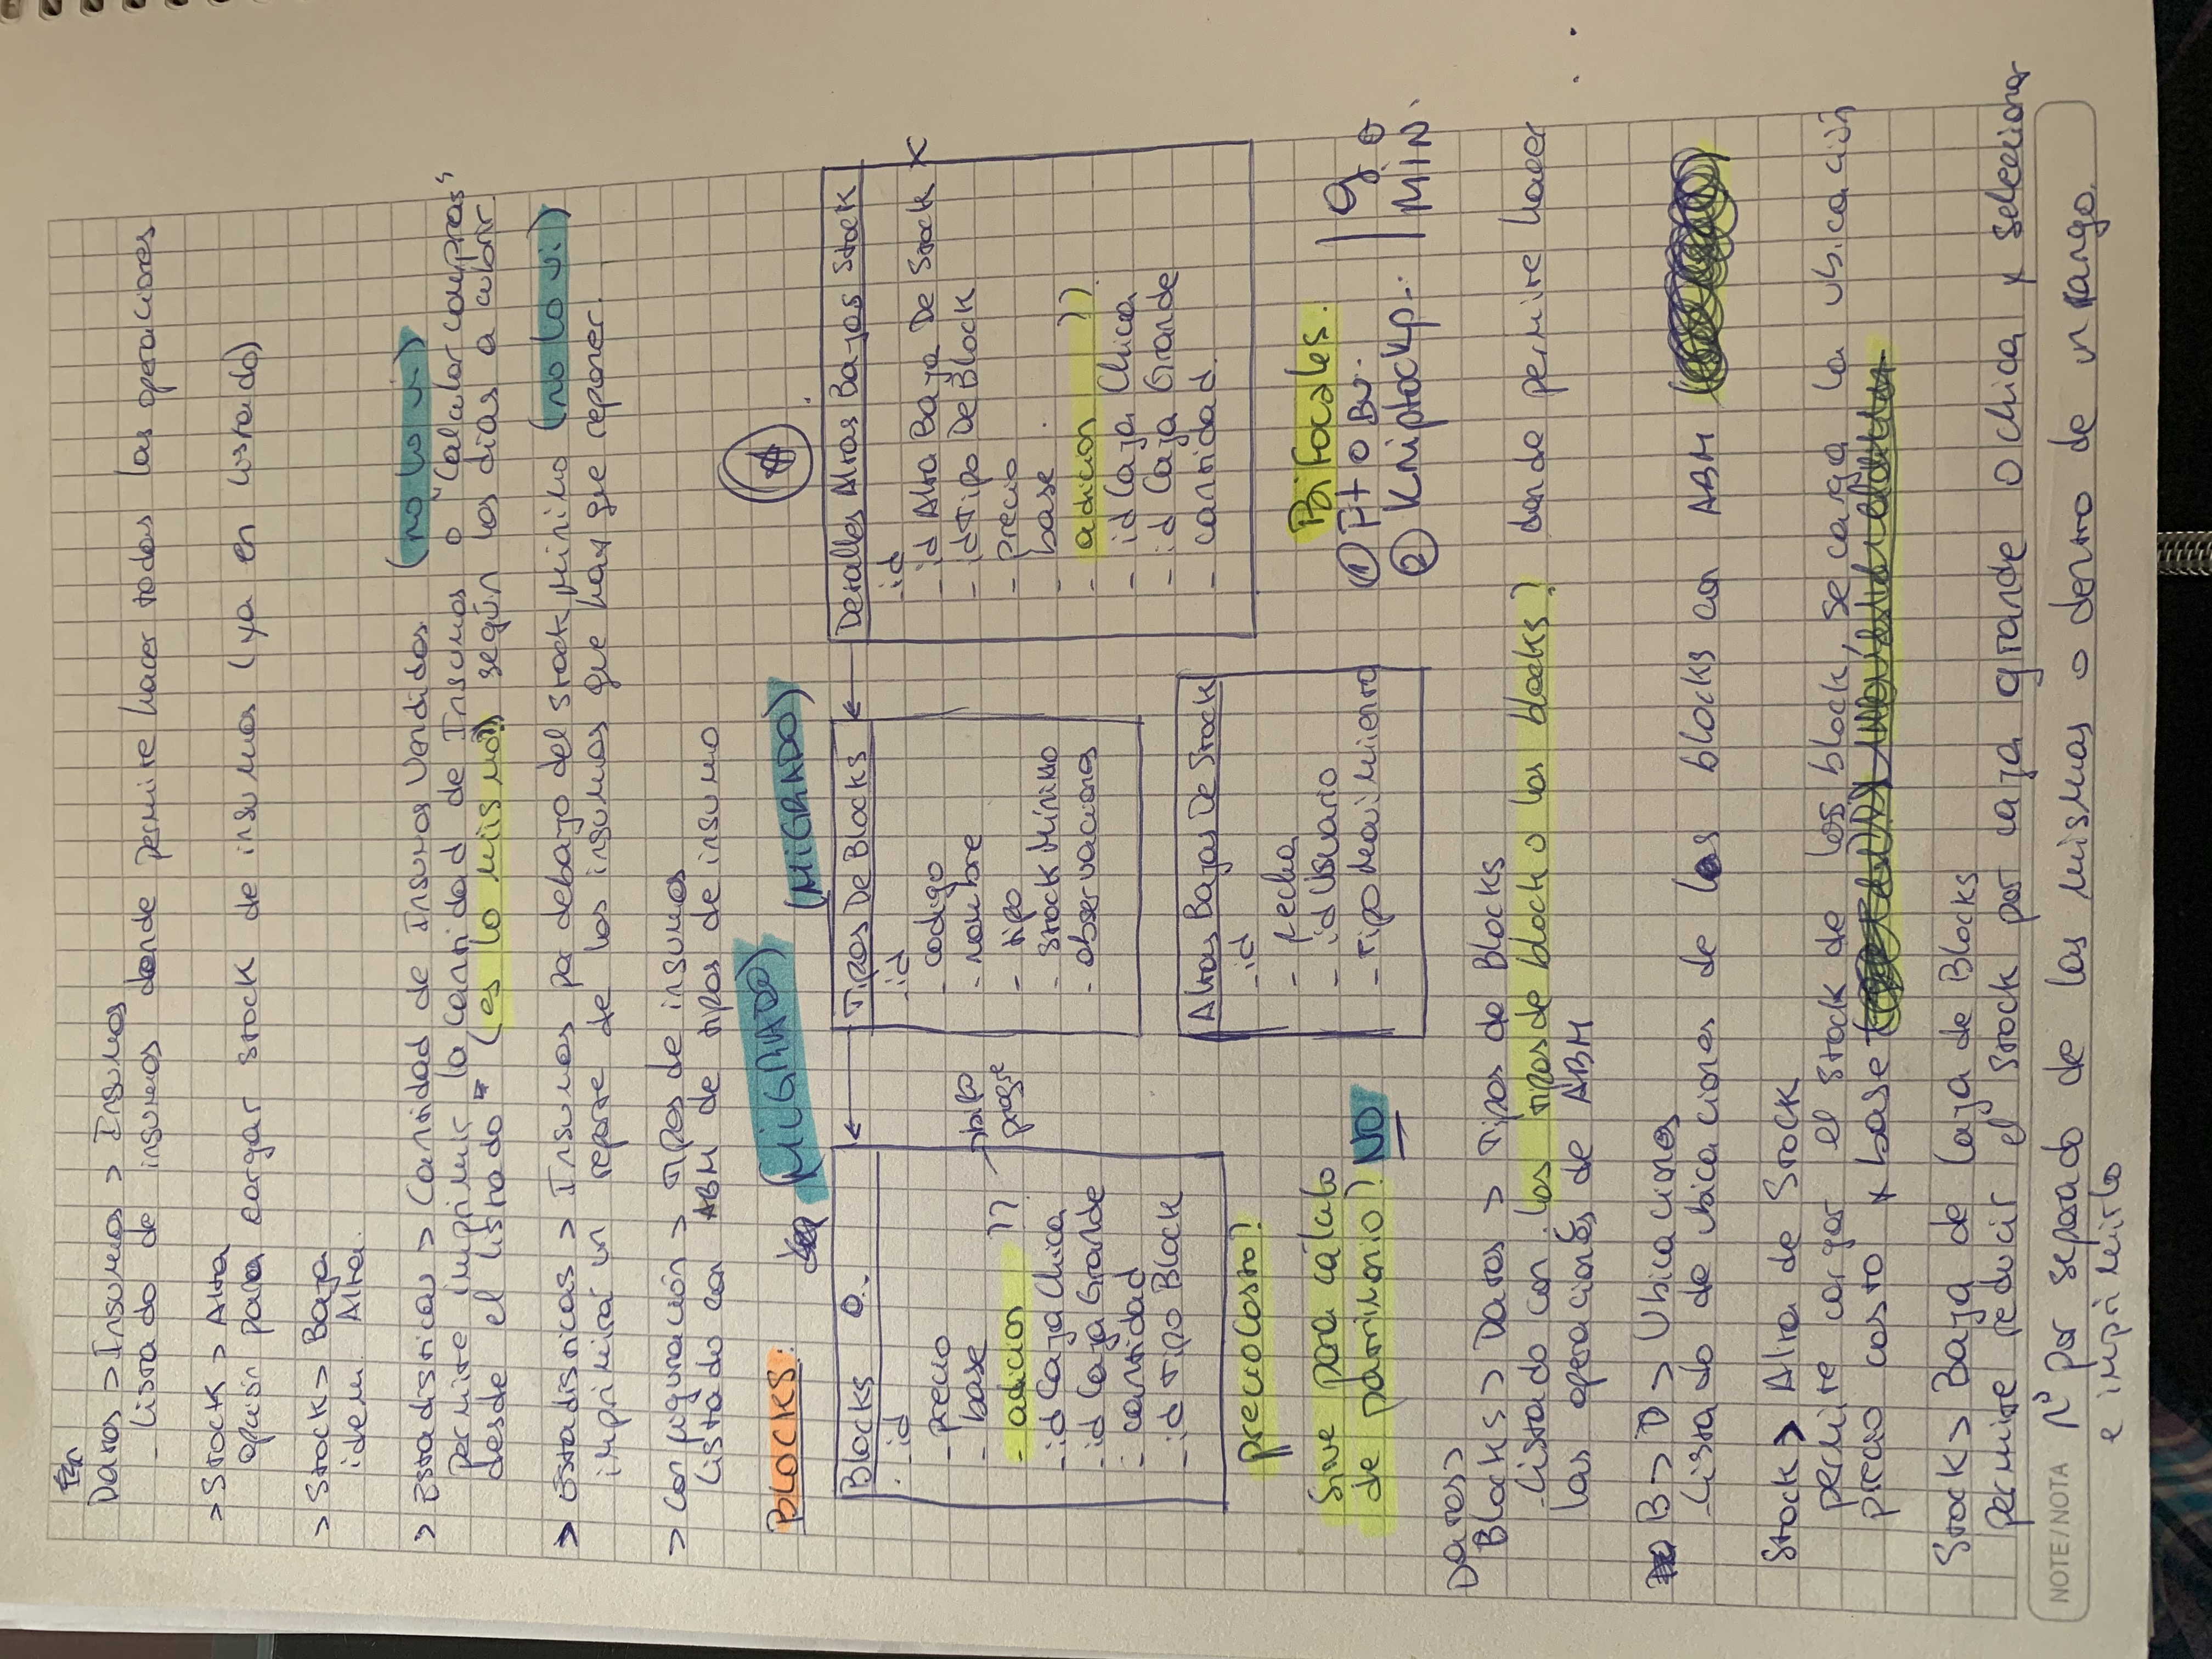 Datos > Insumos > Insumos
- Listado de insumos donde permite hacer todas las operaciones
> Stock > Alta
opción para cargar stock de insumos (ya en listado)
> Stock > Baja
idem. Alta.
> Estadísticas > Cantidad de Insumos Vendidos (no lo vi)
permite imprimir la cantidad de Insumos o "Calcular compras"
desde el listado (es lo mismo?) según los días a cubrir.
> Estadísticas > Insumos por debajo del stock mínimo (no lo vi)
imprimirá un reporte de los insumos que hay que reponer.
> Configuración > Tipos de insumos
Listado con ABM de tipos de insumo
BLOCKS: (MIGRADO) (MIGRADO)
Blocks
- id
- precio
- base
- adicion ??
bifo
progre
- id Caja Chica
- id Caja Grande
- cantidad
- id Tipo Block
Tipos De Blocks
- id
- codigo
- nombre
- tipo
- Stock Mínimo
- observaciones
Detalles Altas Bajas Stock
- id
- id Alta Baja De Stock
- id Tipo De Block
- precio
- base
- adicion ??
- id Caja Chica
- id Caja Grande
- cantidad.
Altas Bajas De Stock
- id
- fecha
- id Usuario
- tipo Movimiento
precio Costo?
Sirve para cálculo
de patrimonio? NO
Bifocales.
① Ft o Bv..
② Kriptockp..
g o
MIN.
Datos>
Blocks > Datos > Tipos de Blocks
- Listado con los tipos de block o los blocks? donde permite hacer
las operaciones de ABM
B > D > Ubicaciones
- Listado de ubicaciones de los blocks con ABM
Stock > Alta de Stock
permite cargar el stock de los block, se carga la ubicación
precio costo x base
Stock > Baja de Caja de Blocks
permite reducir el stock por caja grande o chica y seleccionar
NOTE/NOTA n° por separado de las mismas o dentro de un rango.
e imprimirlo